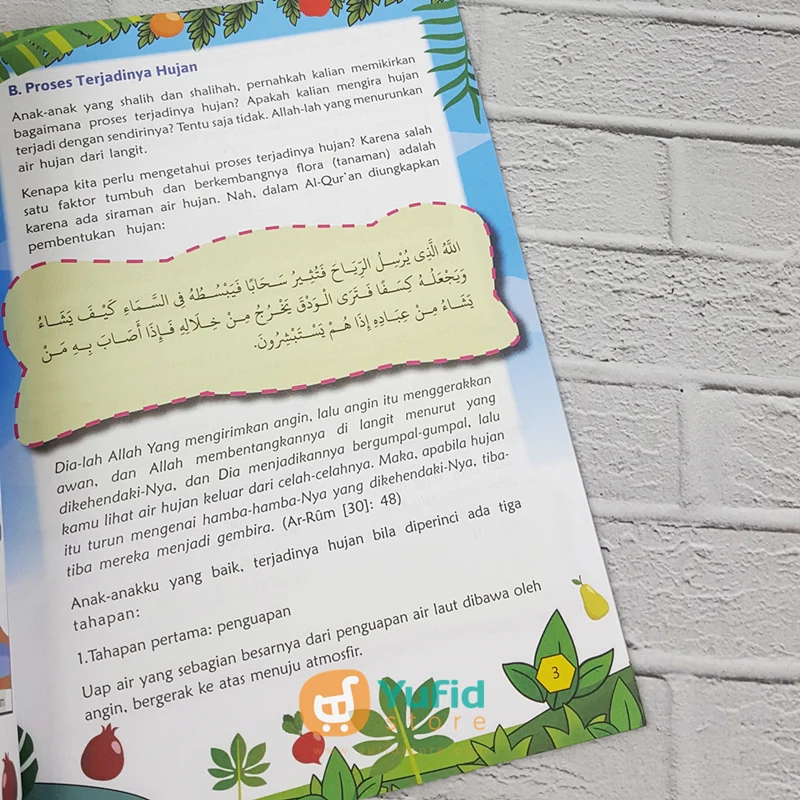 B. Proses Terjadinya Hujan
Anak-anak yang shalih dan shalihah, pernahkah kalian memikirkan
bagaimana proses terjadinya hujan? Apakah kalian mengira hujan
terjadi dengan sendirinya? Tentu saja tidak. Allah-lah yang menurunkan
air hujan dari langit.
Kenapa kita perlu mengetahui proses terjadinya hujan? Karena salah
satu faktor tumbuh dan berkembangnya flora (tanaman) adalah
karena ada siraman air hujan. Nah, dalam Al-Qur'an diungkapkan
pembentukan hujan:
اللهُ الَّذِي يُرْسِلُ الرِّيَاحَ فَتُثِيرُ سَحَابًا فَيَبْسُطُهُ فِي السَّمَاءِ كَيْفَ يَشَاءُ
وَيَجْعَلُهُ كِسَفًا فَتَرَى الْوَدْقَ يَخْرُجُ مِنْ خِلَالِهِ فَإِذَا أَصَابَ بِهِ مَنْ
يَشَاءُ مِنْ عِبَادِهِ إِذَا هُمْ يَسْتَبْشِرُونَ.
Dia-lah Allah Yang mengirimkan angin, lalu angin itu menggerakkan
awan, dan Allah membentangkannya di langit menurut yang
dikehendaki-Nya, dan Dia menjadikannya bergumpal-gumpal, lalu
kamu lihat air hujan keluar dari celah-celahnya. Maka, apabila hujan
itu turun mengenai hamba-hamba-Nya yang dikehendaki-Nya, tiba-
tiba mereka menjadi gembira. (Ar-Rûm [30]: 48)
Anak-anakku yang baik, terjadinya hujan bila diperinci ada tiga
tahapan:
1.Tahapan pertama: penguapan
Uap air yang sebagian besarnya dari penguapan air laut dibawa oleh
angin, bergerak ke atas menuju atmosfir.
3
Yufid
store